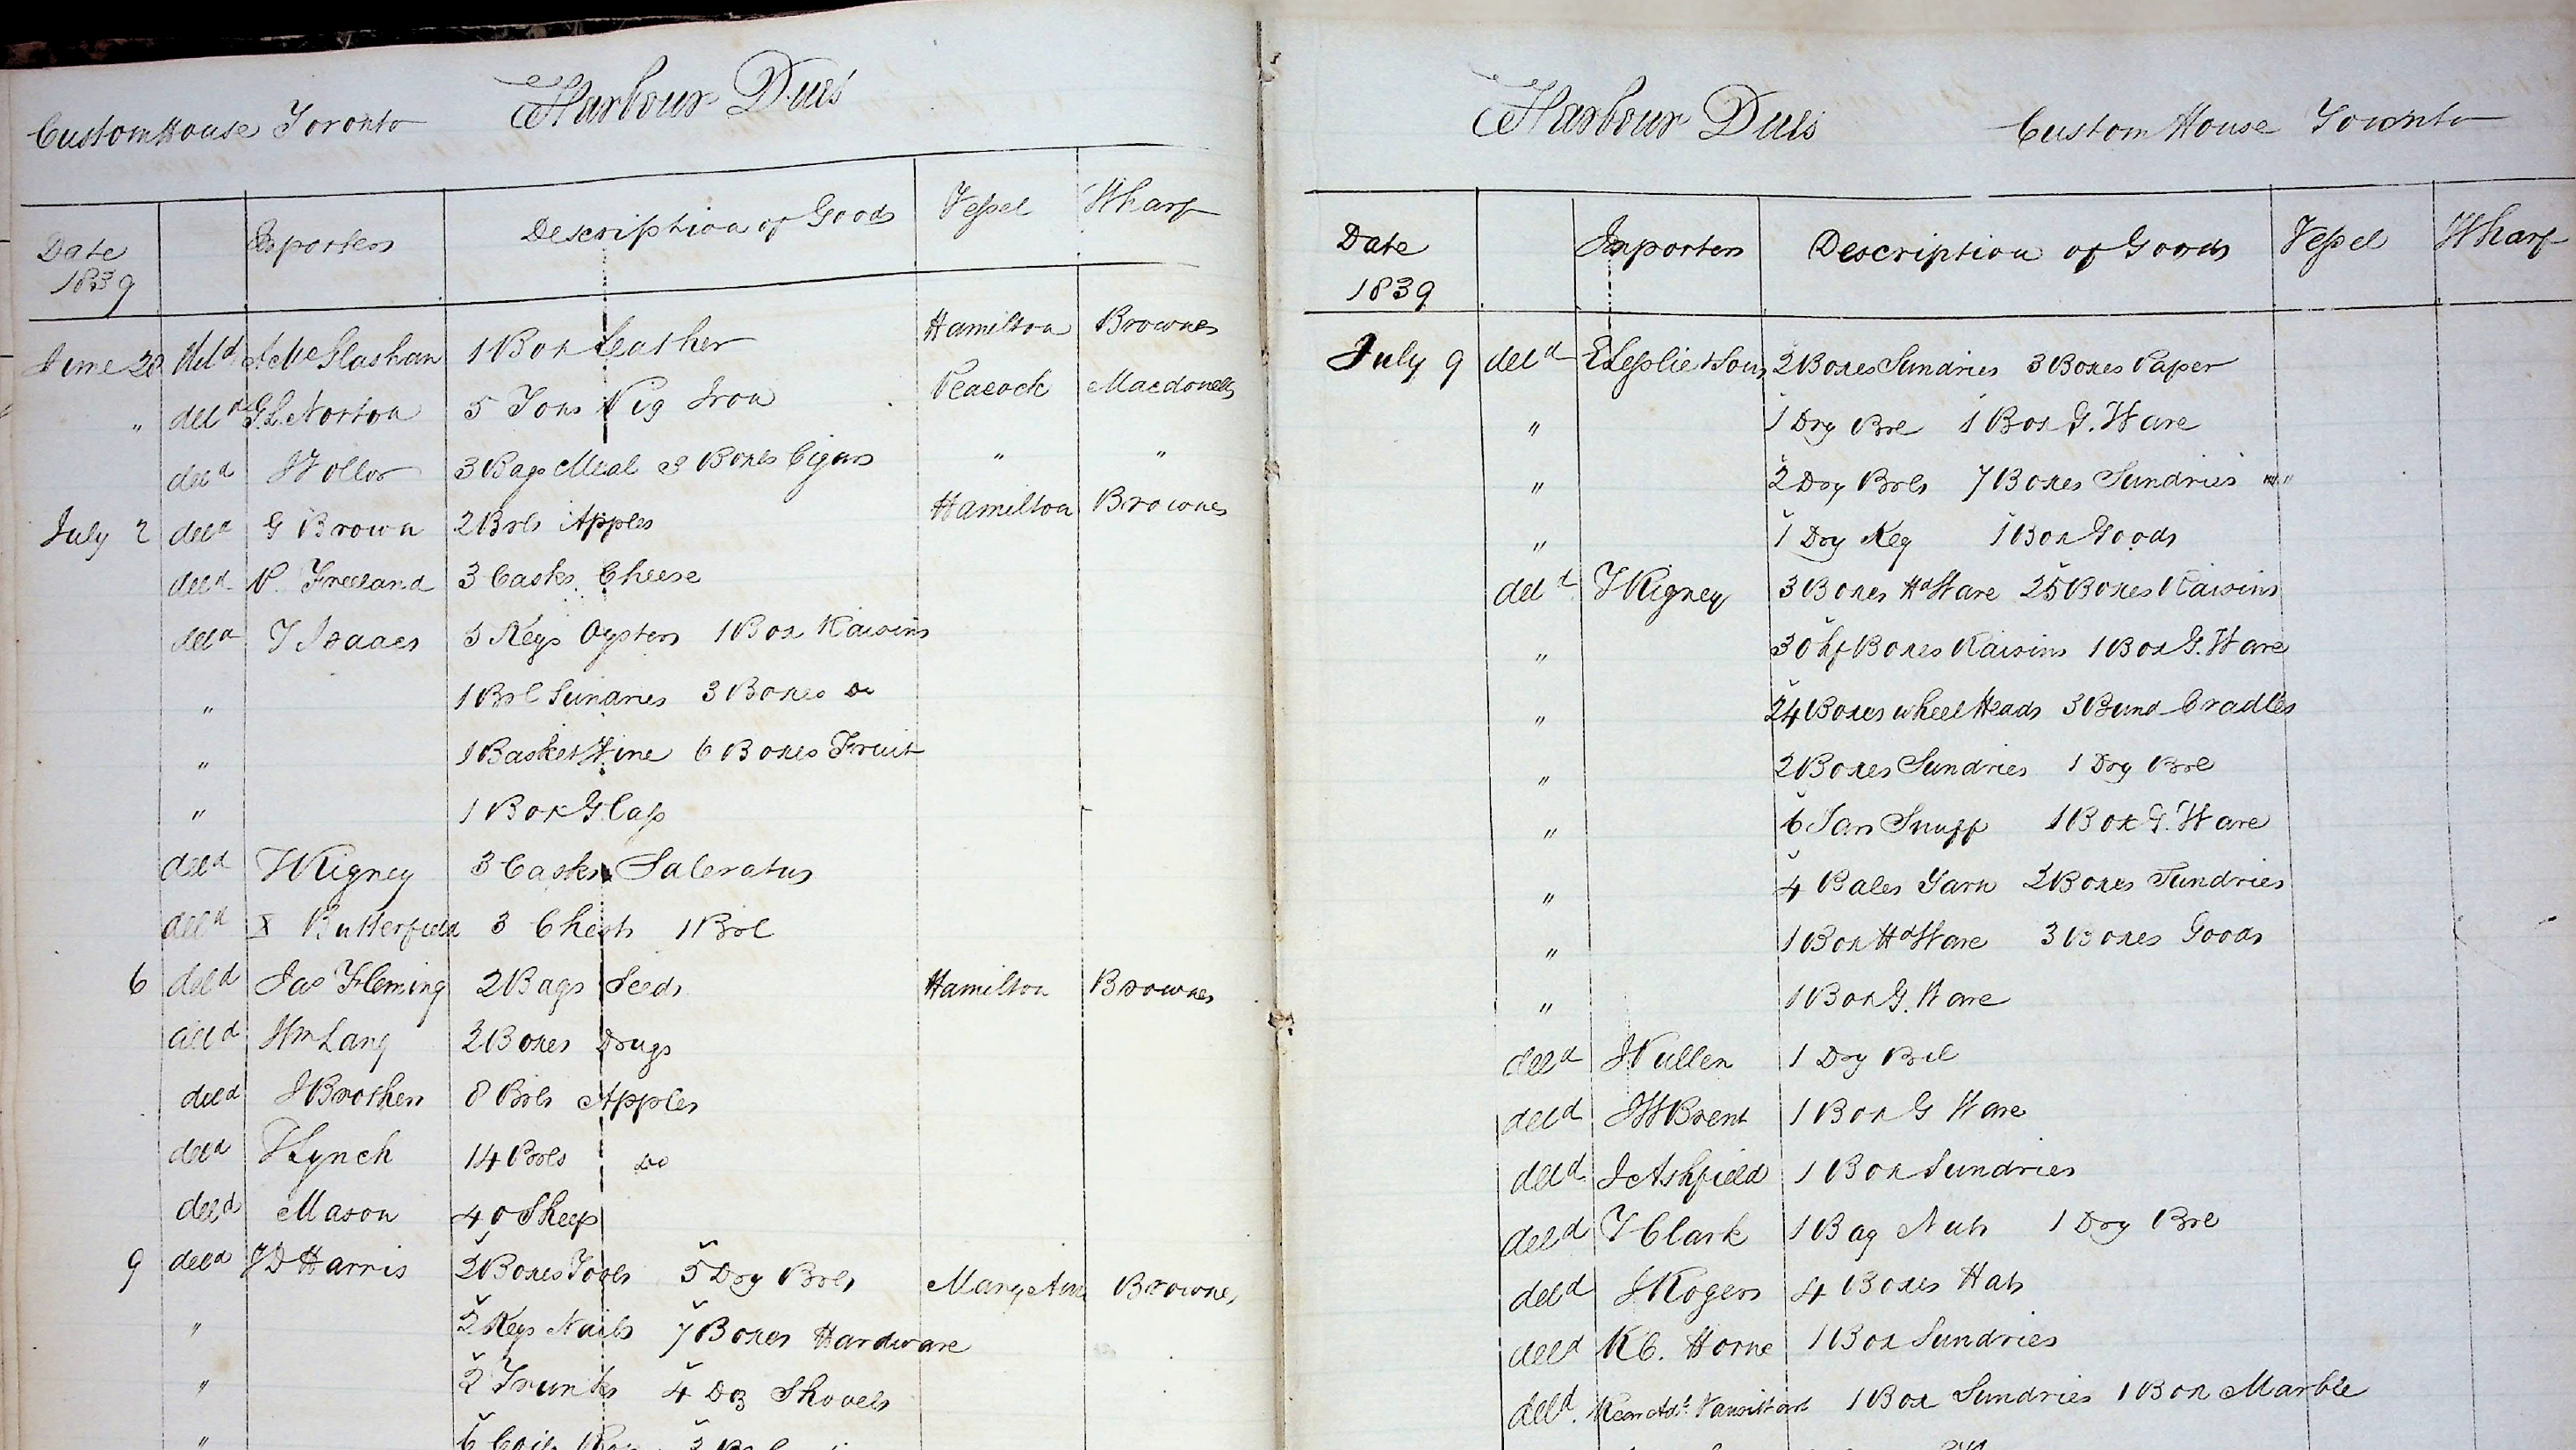 Harbour Dues
Custom House Toronto
Date 1839 Importers Description of Goods Vessel Wharf
June 28 deld A McGlashan 1 Box Leather Hamilton Brownes
" deld G.L. Norton 5 Tons Pig Iron Peacock Macdonells
deld 3 Bags Meal 3 Boxes Cigars " "
July 2 deld G Brown 2 Brls Apples Hamilton Brownes
deld P. Freeland 3 Casks Cheese
deld T Isaacs 5 Kegs Oysters 1 Box Raisins
" 1 Brl Sundries 3 Boxes Do
" 1 Basket Wine 6 Boxes Fruit
" 1 Box Glass
deld T Rigney 3 Casks Saleratus
deld X Butterfield 3 Chests 1 Brl
6 deld Jas Fleming 2 Bags Seeds Hamilton Brownes
deld Wm Lang 2 Boxes Drugs
deld J Brothers 8 Brls Apples
deld T Lynch 14 Brls Do
deld Mason 40 Sheep
9 deld J D Harris 2 Boxes Tools 5 Dry Brls Mary Ann Brownes
" 2 Kegs Nails 7 Boxes Hardware
" 2 Trunks 4 Dz Shovels
" 6 Coils 3
Harbour Dues Custom House Toronto
Date 1839 Importers Description of Goods Vessel Wharf
July 9 deld E Lesslie & Sons 2 Boxes Sundries 3 Boxes Paper
" 1 Dry Brl 1 Box G. Ware
" 2 Dry Brls 7 Boxes Sundries
" 1 Dry Keg 1 Box Goods
deld T Rigney 3 Boxes Hd Ware 25 Boxes Raisins
" 30 hf Boxes Raisins 1 Box G. Ware
" 24 Boxes wheel Heads 3 Bund Cradles
" 2 Boxes Sundries 1 Dry Brl
" 6 Jars Snuff 1 Box G. Ware
" 4 Bales Yarn 2 Boxes Sundries
" 1 Box Hd Ware 3 Boxes Goods
" 1 Box G. Ware
deld J Cullen 1 Dry Brl
deld J W Brent 1 Box G Ware
deld J Ashfield 1 Box Sundries
deld T Clark 1 Bag Nuts 1 Dry Brl
deld J Rogers 4 Boxes Hats
deld R C. Horne 1 Box Sundries
deld. Rear Adl. Vansittart 1 Box Sundries 1 Box Marble